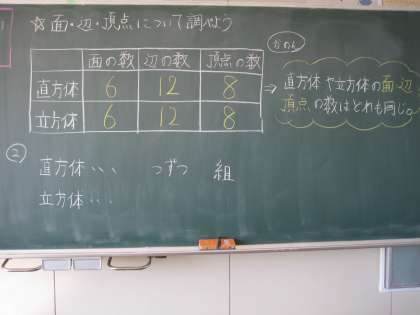 ☆面・辺・頂点について調べよう
面の数 辺の数 頂点の数
直方体 6 12 8
立方体 6 12 8
⇒ 直方体や立方体の面・辺・
頂点の数はどれも同じ。
②
直方体・・・ つずつ 組
立方体・・・